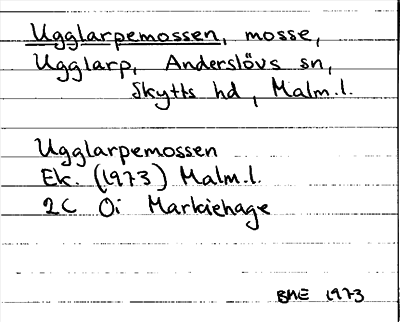 Ugglarpemossen, mosse,
Ugglarp, Anderslövs sn,
Skytts hd, Malm.l.
Ugglarpemossen
Ek. (1973) Malm.l.
2C Oi Markiehage
BME 1973